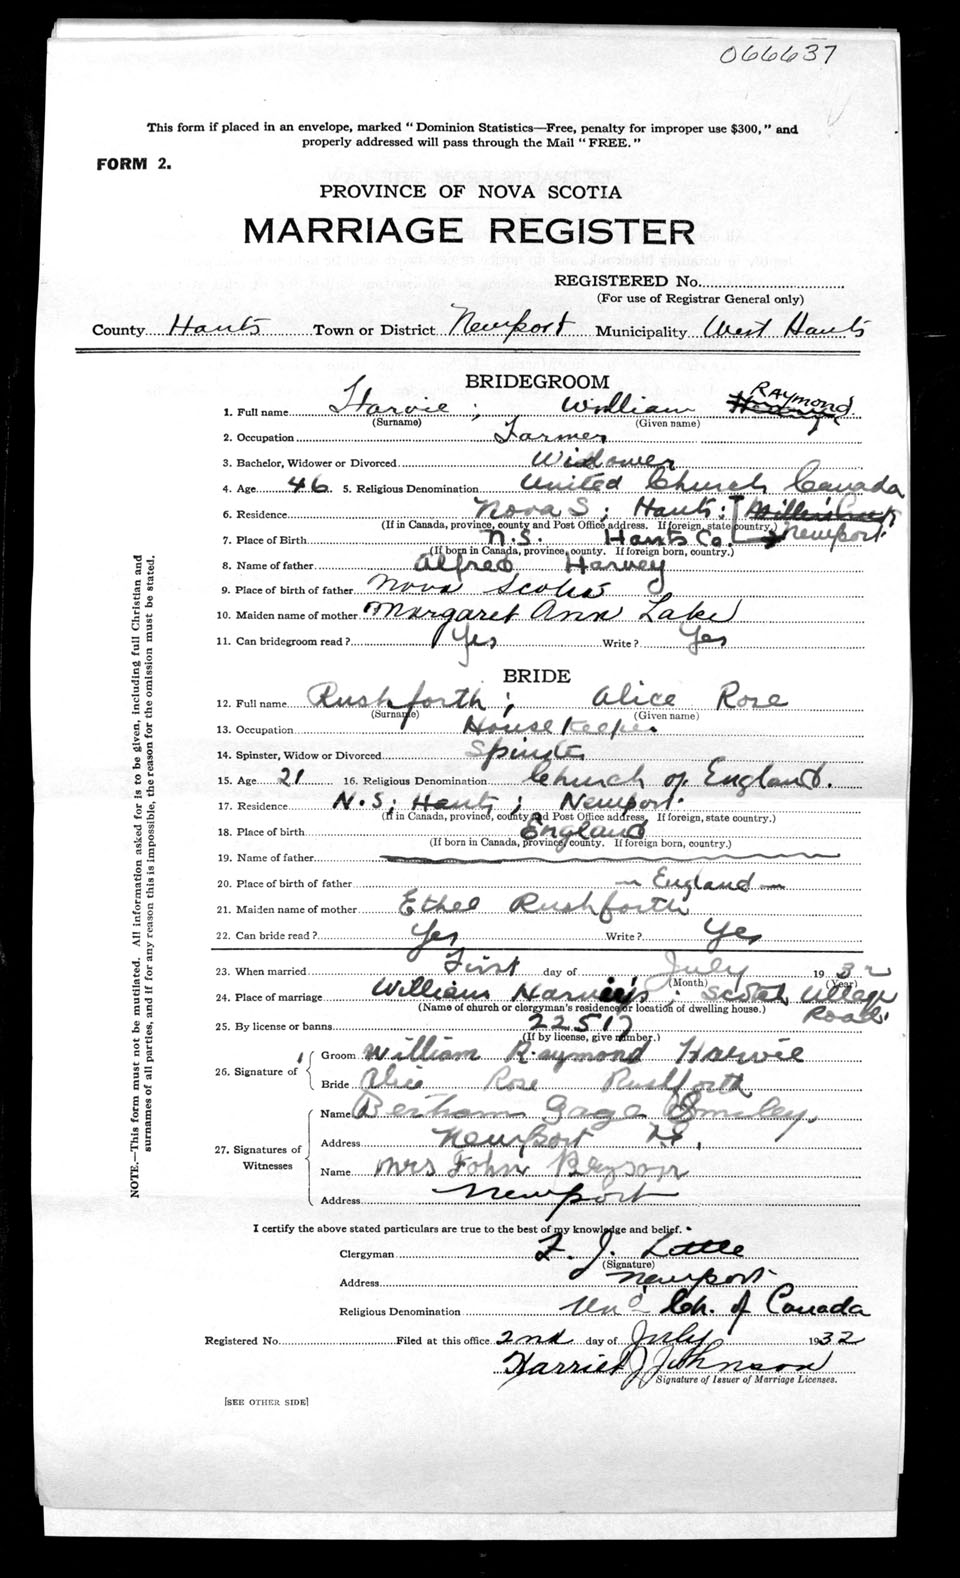 066637
This form if placed in an envelope, marked "Dominion Statistics—Free, penalty for improper use $300," and
properly addressed will pass through the Mail "FREE."
FORM 2.
PROVINCE OF NOVA SCOTIA
MARRIAGE REGISTER
REGISTERED No.
(For use of Registrar General only)
County Hants Town or District Newport Municipality West Hants
BRIDEGROOM
RAYMOND
1. Full name Harvie ; William Henry
(Surname) (Given name)
2. Occupation Farmer
3. Bachelor, Widower or Divorced Widower
4. Age 46. 5. Religious Denomination United Church Canada
6. Residence Nova S ; Hants :
(If in Canada, province, county and Post Office address. If foreign, state country.) Newport.
7. Place of Birth N.S. Hants Co.
(If born in Canada, province, county. If foreign born, country.)
8. Name of father Alfred Harvey
9. Place of birth of father Nova Scotia
10. Maiden name of mother Margaret Ann Lake
11. Can bridegroom read? Yes Write? Yes
BRIDE
12. Full name Rushforth ; Alice Rose
(Surname) (Given name)
13. Occupation House Keeper
14. Spinster, Widow or Divorced Spinster
15. Age 21 16. Religious Denomination Church of England.
17. Residence N.S ; Hants ; Newport.
(If in Canada, province, county and Post Office address. If foreign, state country.)
18. Place of birth England
(If born in Canada, province, county. If foreign born, country.)
19. Name of father
20. Place of birth of father — England —
21. Maiden name of mother Ethel Rushforth
22. Can bride read? Yes Write? Yes
23. When married First day of July 1932
(Month) (Year)
24. Place of marriage William Harvie's ; Scotch Village
(Name of church or clergyman's residence or location of dwelling house.) Road.
25. By license or banns 22517
(If by license, give number.)
26. Signature of
Groom William Raymond Harvie
Bride Alice Rose Rushforth
27. Signatures of Witnesses
Name Gage Smiley
Address Newport
Name Mrs John
Address Newport
I certify the above stated particulars are true to the best of my knowledge and belief.
Clergyman F. J. Little
(Signature)
Address Newport
Religious Denomination Un'd Ch. of Canada
Registered No. Filed at this office 2nd day of July 1932
Harriet J Johnson
Signature of Issuer of Marriage Licenses.
[SEE OTHER SIDE]
NOTE.—This form must not be mutilated. All information asked for is to be given, including full Christian and
surnames of all parties, and if for any reason this is impossible, the reason for the omission must be stated.